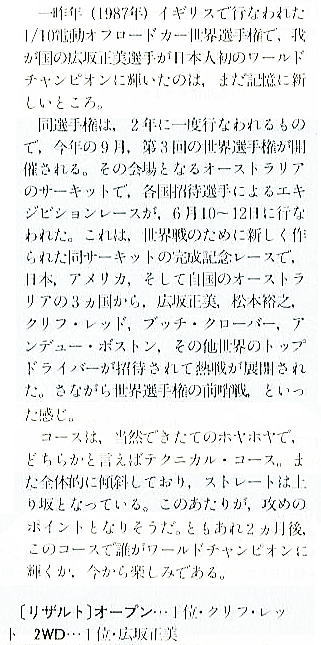 一昨年（1987年）イギリスで行なわれた
1/10電動オフロードカー世界選手権で，我
が国の広坂正美選手が日本人初のワールド
チャンピオンに輝いたのは，まだ記憶に新
しいところ。
同選手権は，2年に一度行なわれるもの
で，今年の9月，第3回の世界選手権が開
催される。その会場となるオーストラリア
のサーキットで，各国招待選手によるエキ
ジビションレースが，6月10〜12日に行な
われた。これは，世界戦のために新しく作
られた同サーキットの完成記念レースで，
日本，アメリカ，そして自国のオーストラ
リアの3ヵ国から，広坂正美，松本裕之，
クリフ・レッド，ブッチ・クローバー，ア
ンデュー・ボストン，その他世界のトップ
ドライバーが招待されて熱戦が展開され
た。さながら世界選手権の前哨戦，といっ
た感じ。
コースは，当然できたてのホヤホヤで，
どちらかと言えばテクニカル・コース。ま
た全体的に傾斜しており，ストレートは上
り坂となっている。このあたりが，攻めの
ポイントとなりそうだ。ともあれ2ヵ月後，
このコースで誰がワールドチャンピオンに
輝くか，今から楽しみである。
〔リザルト〕オープン…1位・クリフ・レッ
ド　2WD…1位・広坂正美